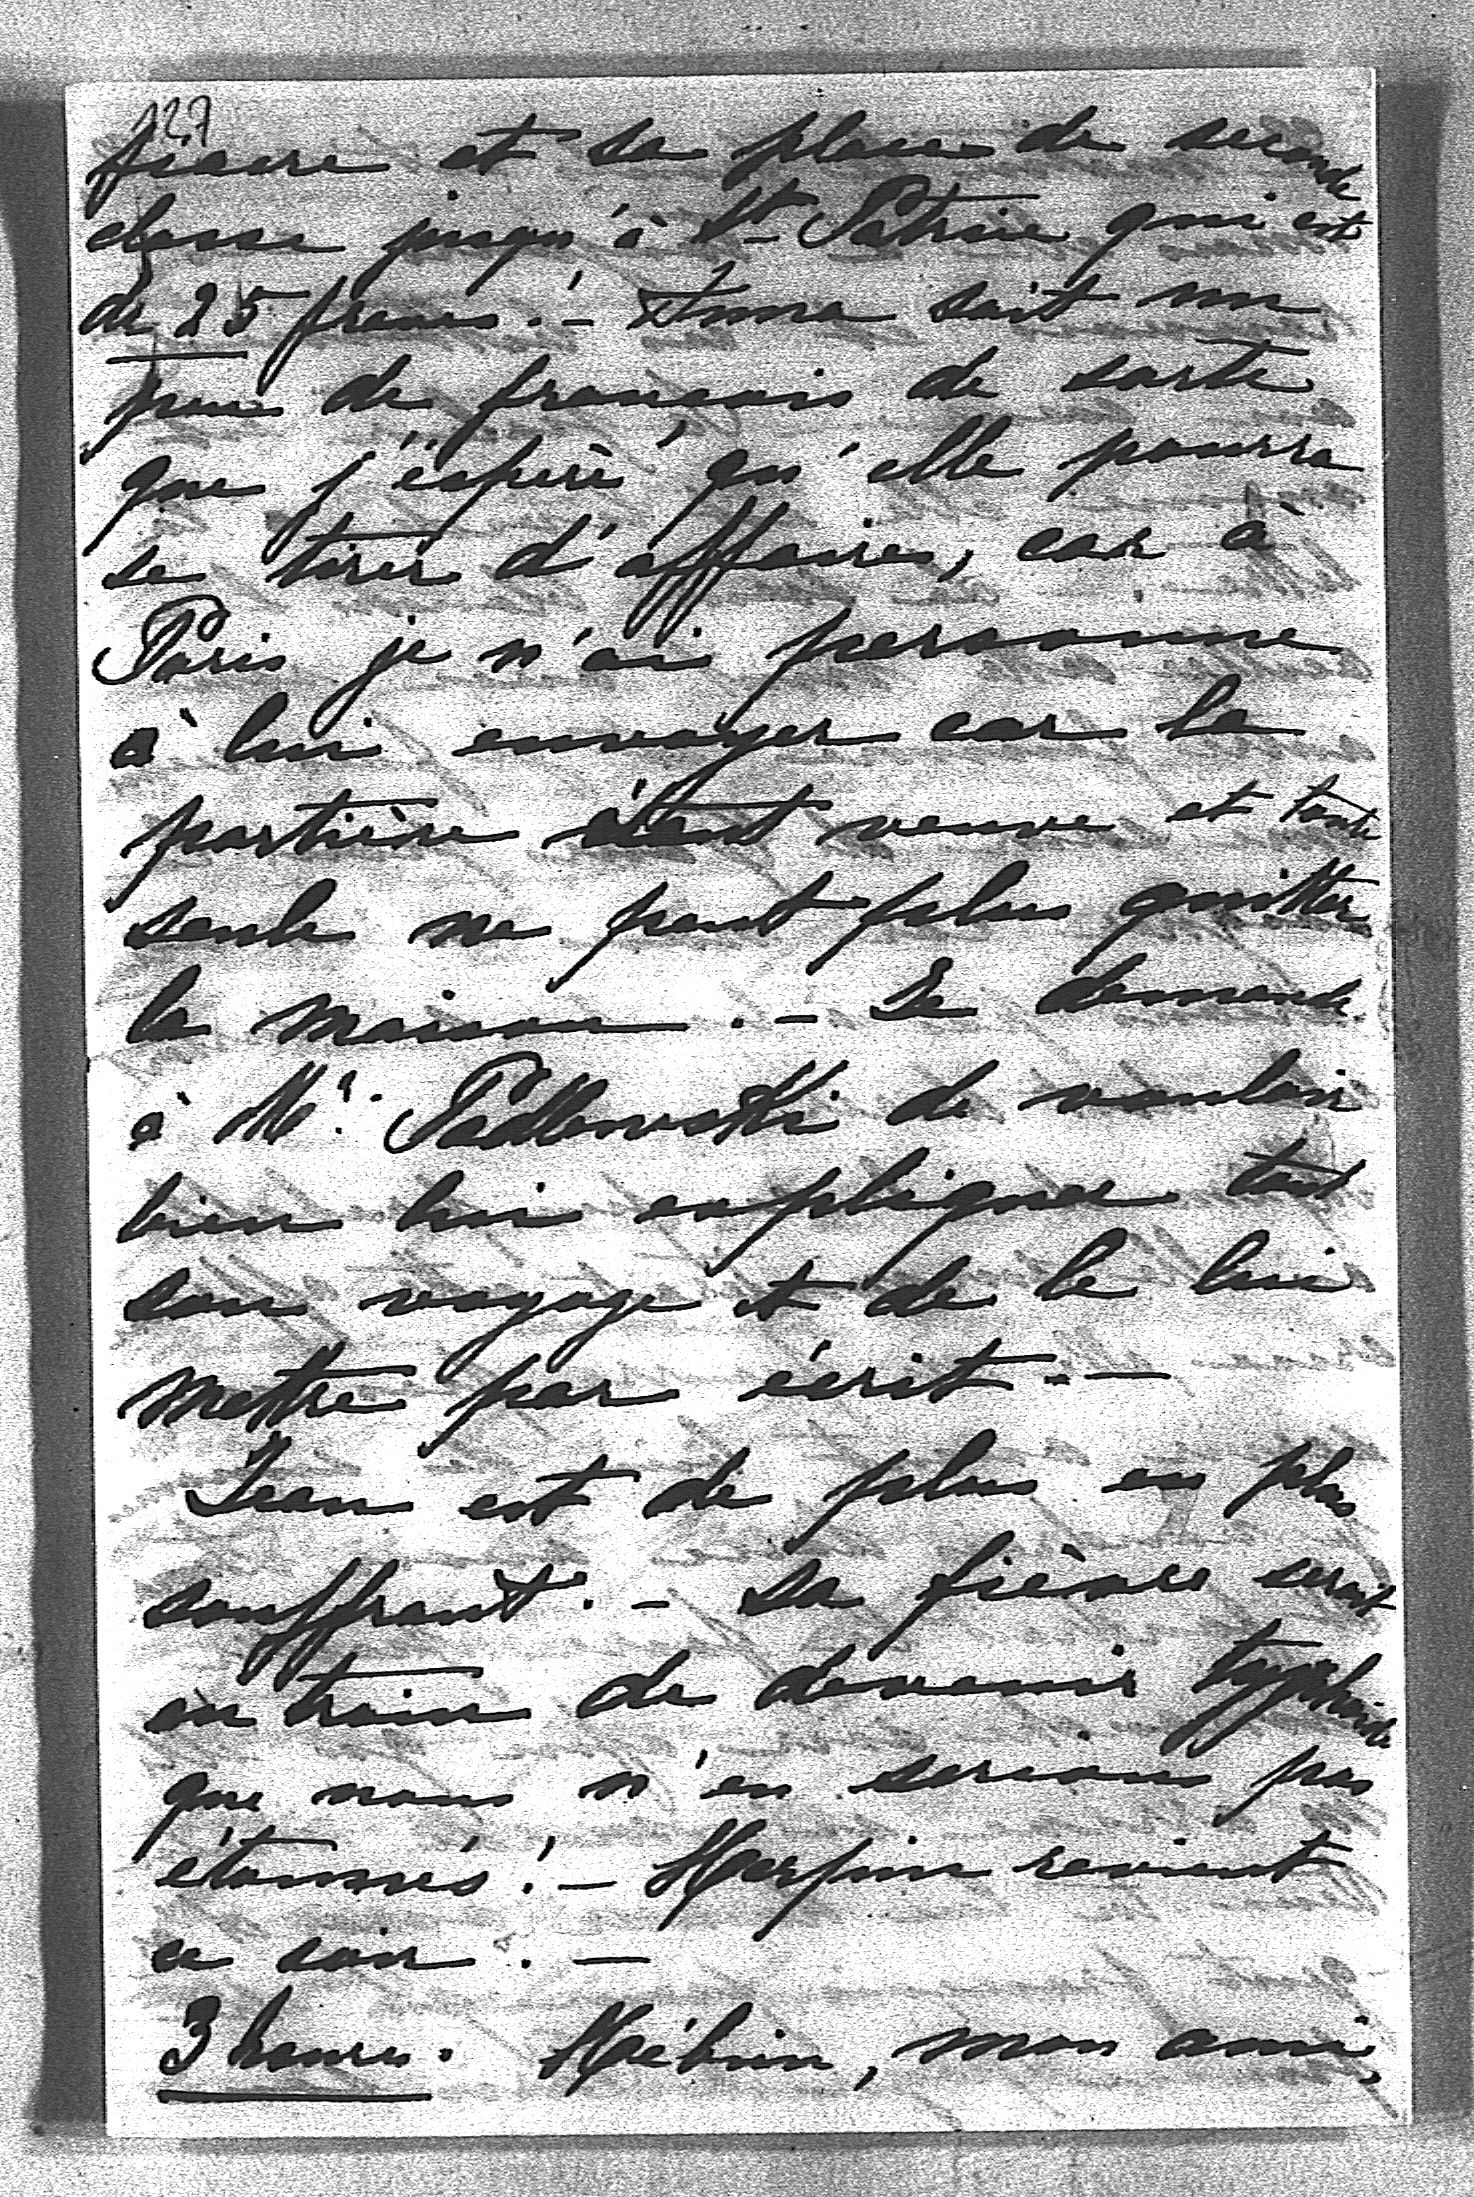 127
fiacre et sa place de seconde
classe jusqu'à St Patrice qui est
de 25 francs. — Anna sait un
peu de français de sorte
que j'espère qu'elle pourra
se tirer d'affaires, car à
Paris je n'ai personne
à lui envoyer car la
portière étant veuve et toute
seule ne peut plus quitter
la maison. — Je demande
à Mr. Padlewski de vouloir
bien lui expliquer tout
son voyage et de le lui
mettre par écrit. —
Jean est de plus en plus
souffrant. — Sa fièvre serait
en train de devenir typhoïde
que nous n'en serions pas
étonnés! — Herpin revient
ce soir. —
3 heures. mon ami,